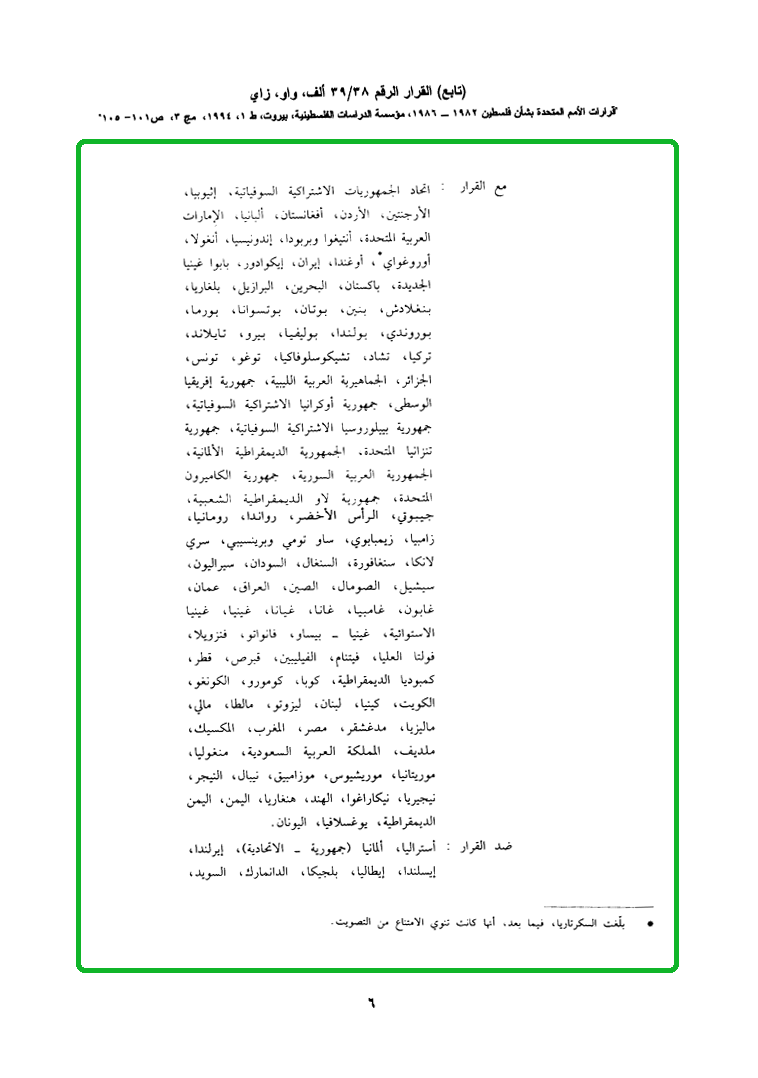 (تابع) القرار الرقم ٣٩/٣٨ ألف، واو، زاي
"قرارات الأمم المتحدة بشأن فلسطين ١٩٨٢ ــ ١٩٨٦، مؤسسة الدراسات الفلسطينية، بيروت، ط ١، ١٩٩٤، مج ٣، ص١٠١- ١٠٥"
مع القرار : اتحاد الجمهوريات الاشتراكية السوفياتية، إثيوبيا،
الأرجنتين، الأردن، أفغانستان، ألبانيا، الإمارات
العربية المتحدة، أنتيغوا وبربودا، إندونيسيا، أنغولا،
أوروغواي*، أوغندا، إيران، إيكوادور، بابوا غينيا
الجديدة، باكستان، البحرين، البرازيل، بلغاريا،
بنغلادش، بنين، بوتان، بوتسوانا، بورما،
بوروندي، بولندا، بوليفيا، بيرو، تايلاند،
تركيا، تشاد، تشيكوسلوفاكيا، توغو، تونس،
الجزائر، الجماهيرية العربية الليبية، جمهورية إفريقيا
الوسطى، جمهورية أوكرانيا الاشتراكية السوفياتية،
جمهورية بييلوروسيا الاشتراكية السوفياتية، جمهورية
تنزانيا المتحدة، الجمهورية الديمقراطية الألمانية،
الجمهورية العربية السورية، جمهورية الكاميرون
المتحدة، جمهورية لاو الديمقراطية الشعبية،
جيبوتي، الرأس الأخضر، رواندا، رومانيا،
زامبيا، زيمبابوي، ساو تومي وبرينسيبي، سري
لانكا، سنغافورة، السنغال، السودان، سيراليون،
سيشيل، الصومال، الصين، العراق، عمان،
غابون، غامبيا، غانا، غيانا، غينيا، غينيا
الاستوائية، غينيا ــ بيساو، فانواتو، فنزويلا،
فولتا العليا، فيتنام، الفيليبين، قبرص، قطر،
كمبوديا الديمقراطية، كوبا، كومورو، الكونغو،
الكويت، كينيا، لبنان، ليزوتو، مالطا، مالي،
ماليزيا، مدغشقر، مصر، المغرب، المكسيك،
ملديف، المملكة العربية السعودية، منغوليا،
موريتانيا، موريشيوس، موزامبيق، نيبال، النيجر،
نيجيريا، نيكاراغوا، الهند، هنغاريا، اليمن، اليمن
الديمقراطية، يوغسلافيا، اليونان.
ضد القرار : أستراليا، ألمانيا (جمهورية ــ الاتحادية)، إيرلندا،
إيسلندا، إيطاليا، بلجيكا، الدانمارك، السويد،
● بلّغت السكرتاريا، فيما بعد، أنها كانت تنوي الامتناع من التصويت.
٦